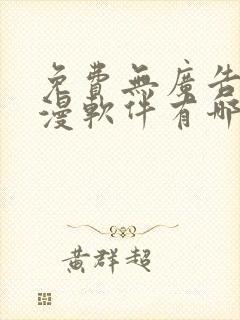 免費無廣告
漫軟件有哪
黃群超